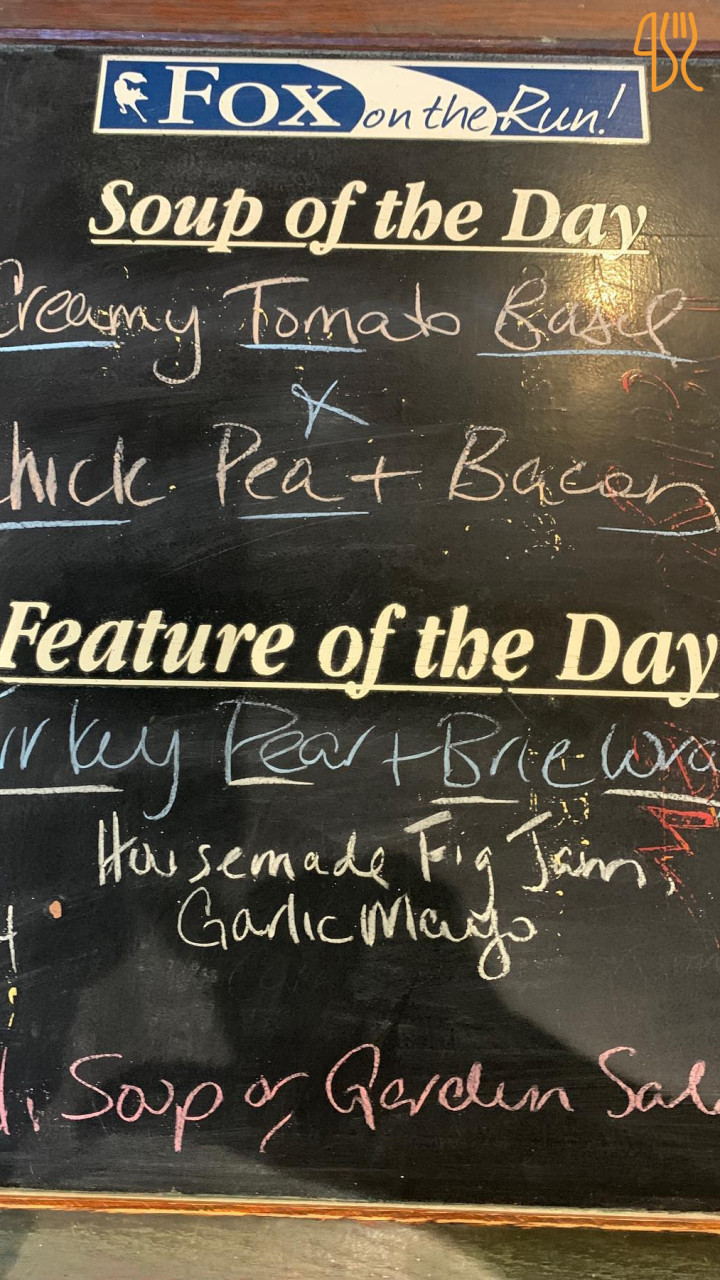 Fox on the Run!
Soup of the Day
Creamy Tomato Basil
&
hick Pea + Bacon
Feature of the Day
urkey Pear + Brie Wra
Housemade Fig Jam,
Garlic Mayo
Soup or Garden Sala